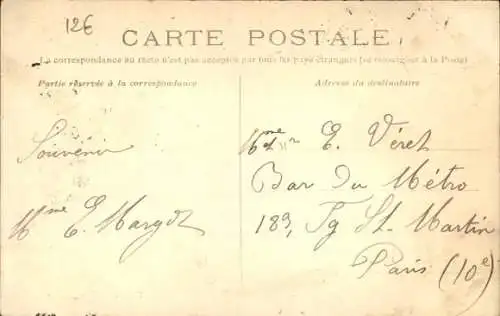 12€
CARTE POSTALE
La correspondance au recto n'est pas acceptée par tous les pays étrangers (se renseigner à la Poste)
Partie réservée à la correspondance
Adresse du destinataire
Souvenir
Mme E. Margot
E. Véret
Bar du Métro
189, Fg St. Martin
Paris (10e)